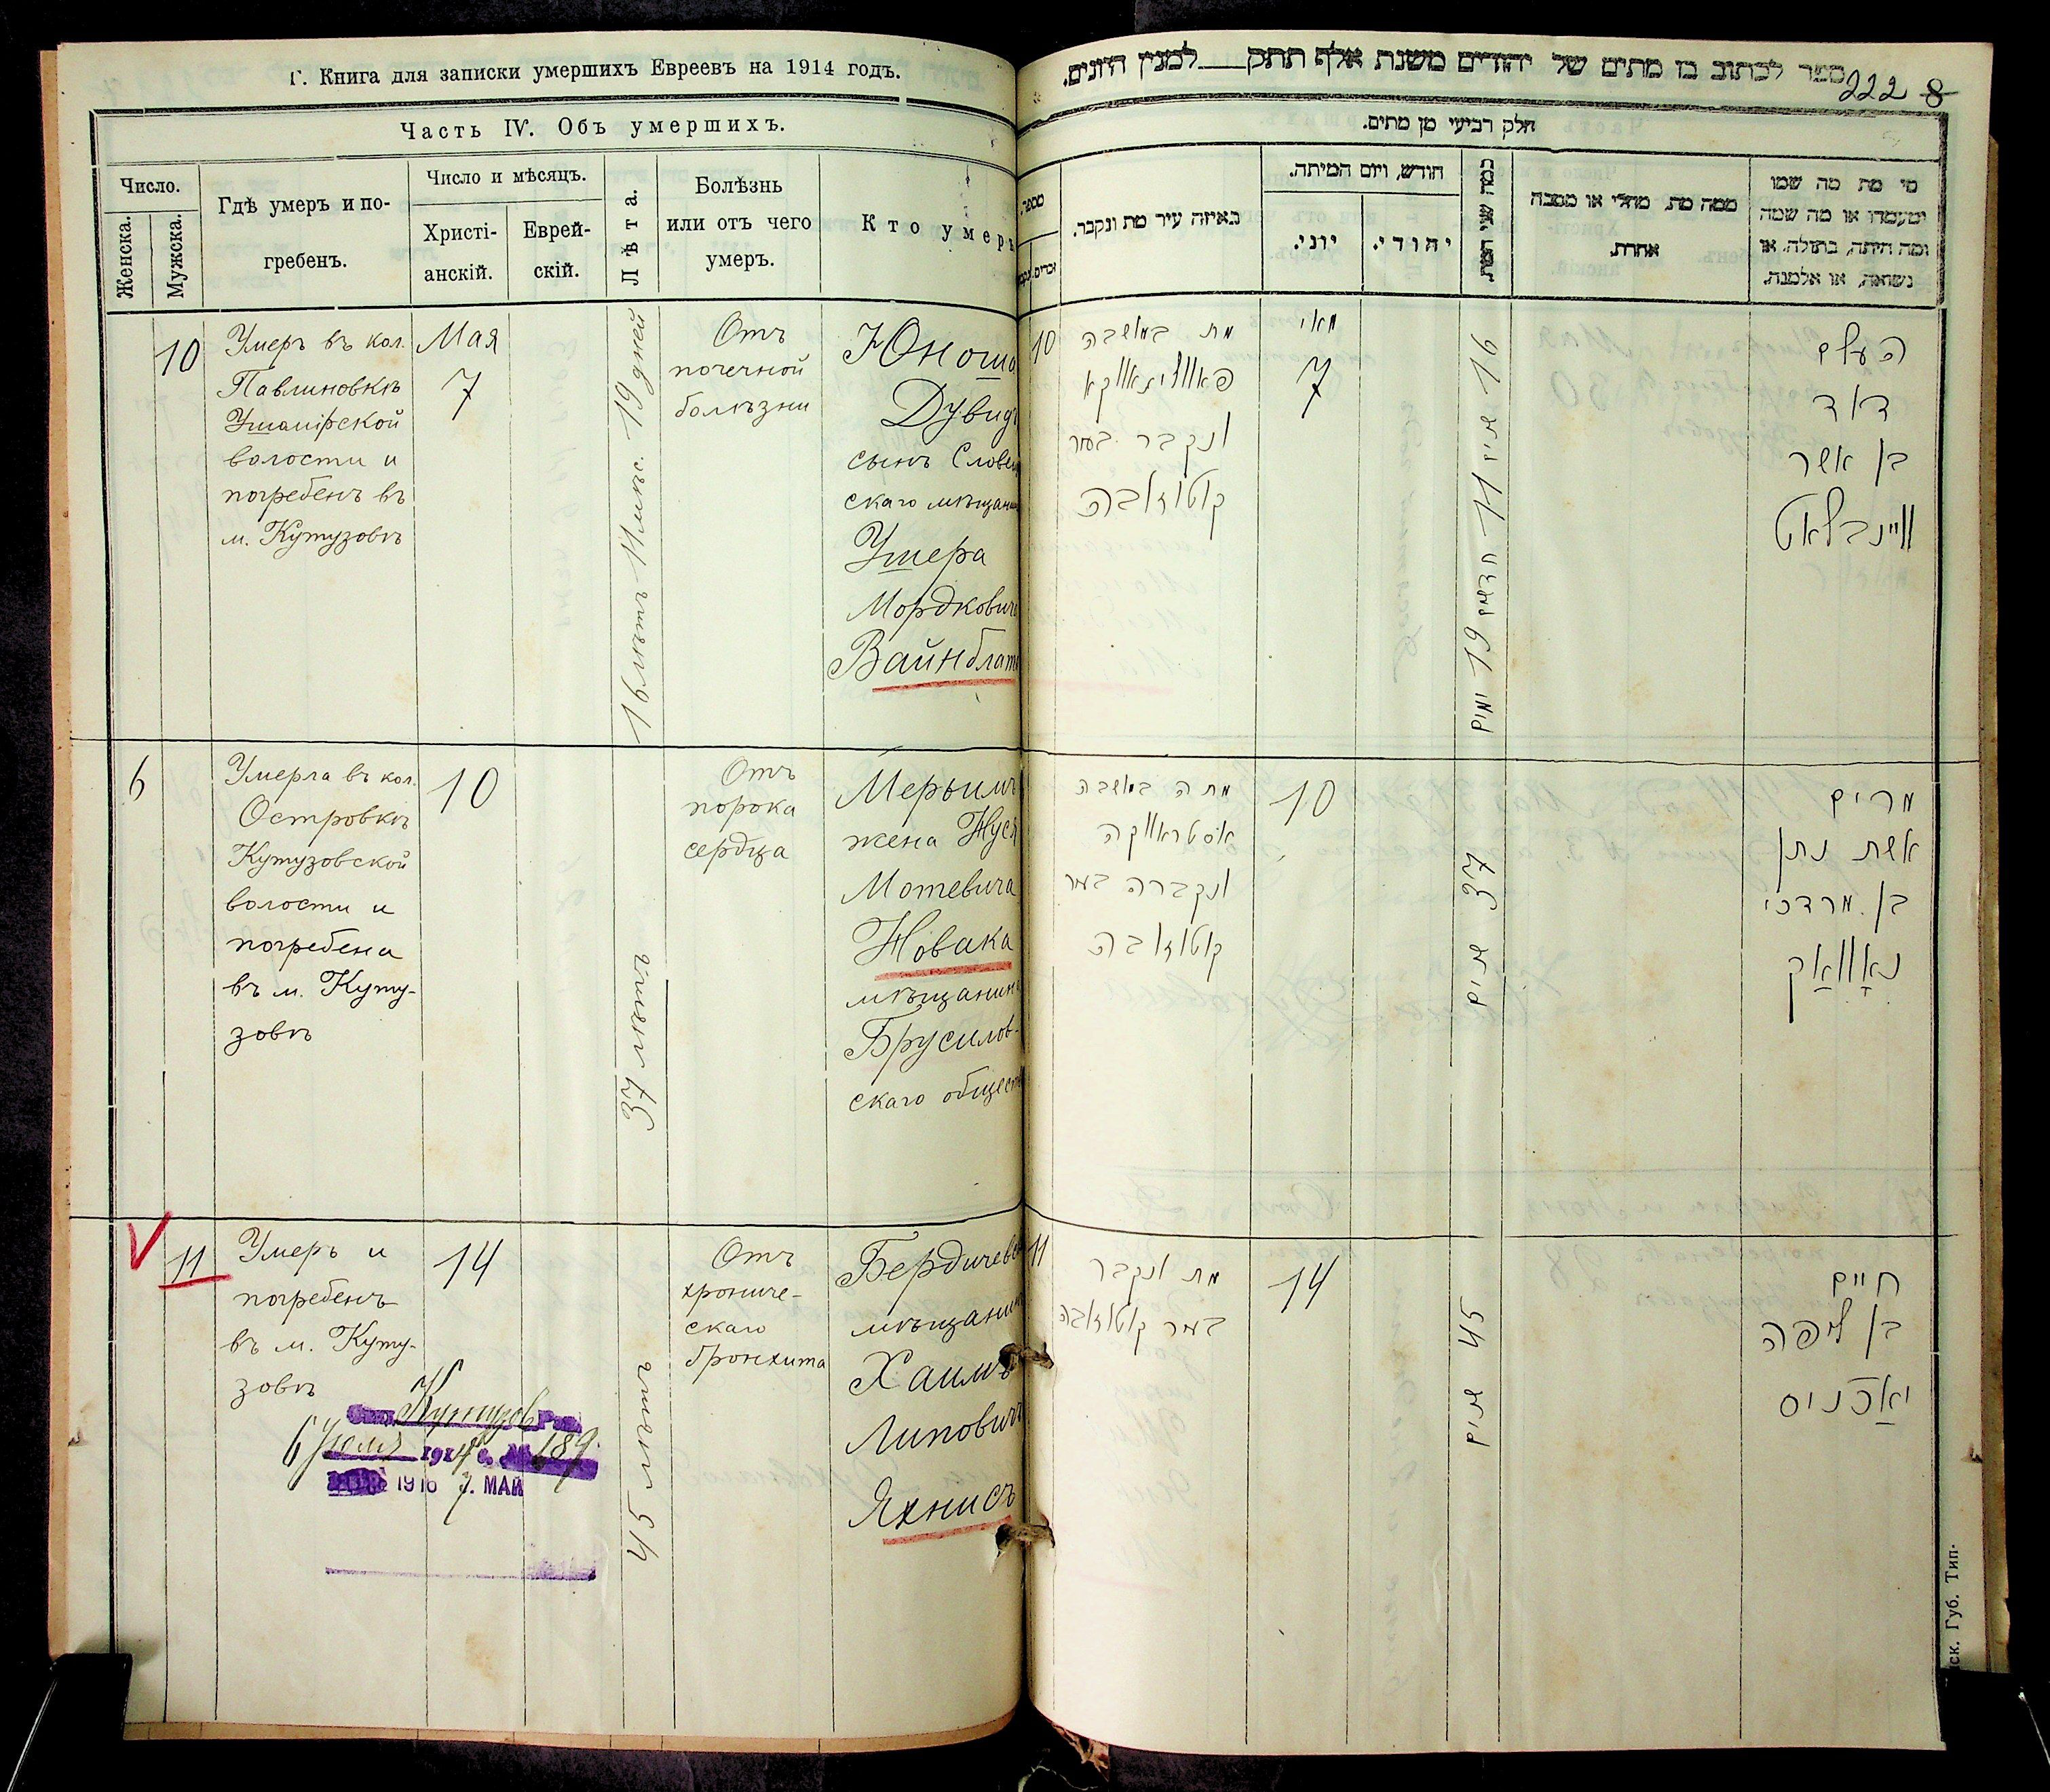 Г. Книга для записки умершихъ Евреевъ на 1914 годъ.
Часть IV. Объ умершихъ.
Число.
Женска.
Мужска.
Гдѣ умеръ и по-
гребенъ.
Число и мѣсяцъ.
Христі-
анскій.
Еврей-
скій.
Лѣта.
Болѣзнь
или отъ чего
умеръ.
Кто умеръ
10
Умеръ въ кол.
Павлиновкѣ
волости и
погребенъ въ
м. Кутузовѣ
Мая
7
16 лѣтъ 11 мѣс. 19 дней
Отъ
почечной
болѣзни
Юноша
Дувидъ
сынъ Словен
скаго мѣщани
Ушера
Мордковича
Вайнблатъ
6
Умерла въ кол.
Островкѣ
Кутузовской
волости и
погребена
въ м. Куту-
зовѣ
10
37 лѣтъ
Отъ
порока
сердца
Мерьимъ
жена Нуся
Мотевича
Новака
мѣщанина
Брусилов-
скаго общест
11
Умеръ и
погребенъ
въ м. Куту-
зовѣ
14
45 лѣтъ
Отъ
хрониче-
скаго
бронхита
Бердичевс
мѣщанинъ
Хаимъ
Липовичъ
Яхнисъ
Кутузов
6 Юля 1914 г. № 189
1916 7. МАЙ
ספר לכתוב בו מתים של יהודים משנת אלף תתק למנין היונים.
222 8
חלק רביעי מן מתים.
מספר.
זכרים.
באיזה עיר מת ונקבר.
חודש, ויום המיתה.
יוני.
יהודי.
כמה שני המת.
ממה מת, מחלי או מסבה
אחרת.
מי מת מה שמו
ומעמדו או מה שמה
ומה היתה, בתולה, או
נשואה, או אלמנה.
10
מת במאשבה
פאוולינאווקא
ונקבר בעיר
קוטוזאבה
מאי
7
16 שנים 11 חדשים 19 ימים
העלם
דוד
בן אשר
וויינבלאט
מתה במאשבה
אסטראווקה
ונקברה בעיר
קוטוזאבה
10
37 שנים
מרים
אשת נתן
בן מרדכי
נאָוואַק
11
מת ונקבר
בעיר קוטוזאבה
14
45 שנים
חיים
בן ליפה
יאַכניס
ск. Губ. Тип-